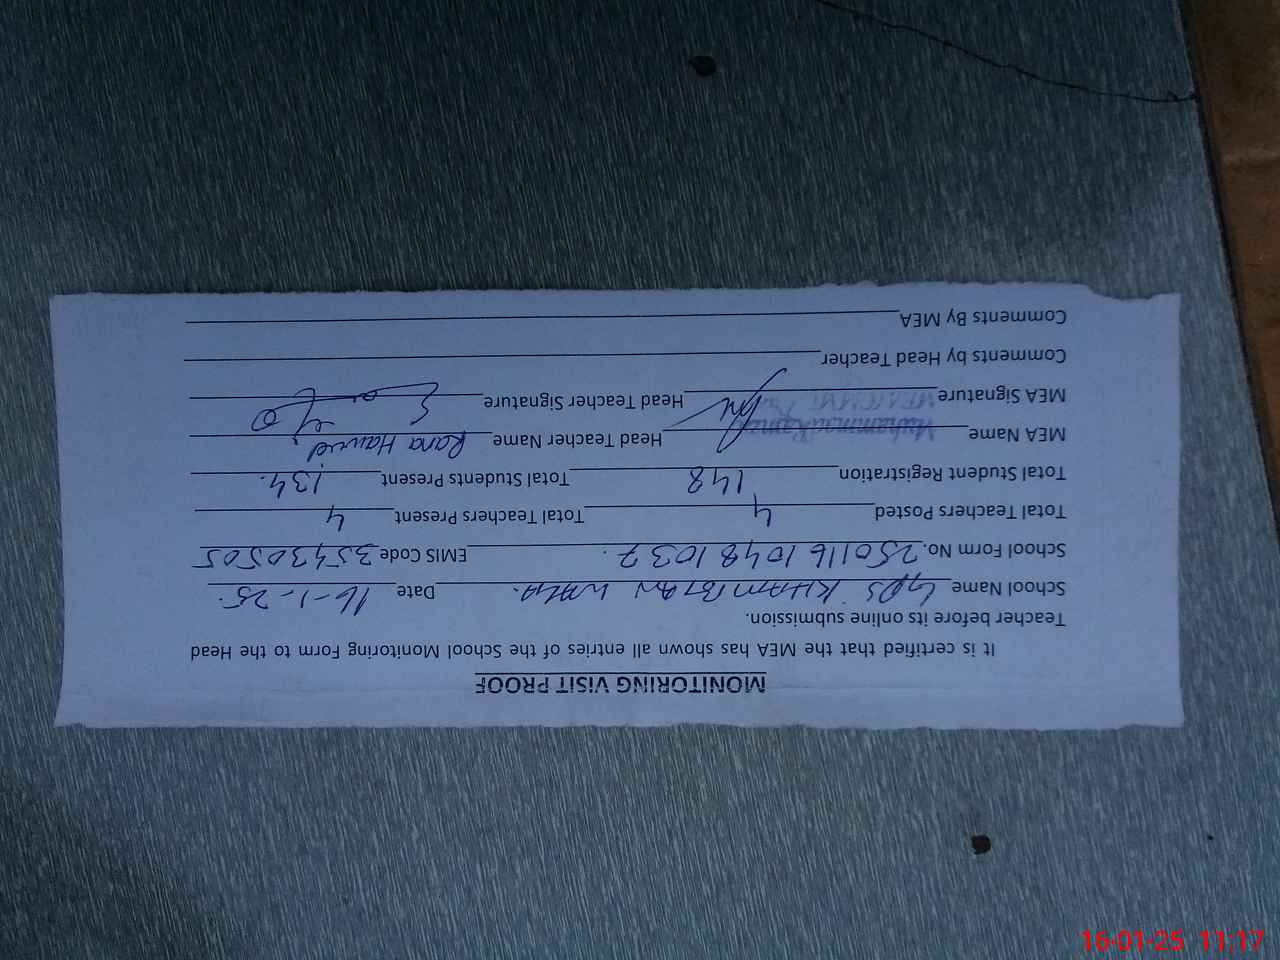 MONITORING VISIT PROOF
It is certified that the MEA has shown all entries of the School Monitoring Form to the Head
Teacher before its online submission.
School Name GPS KHAMBIAN WALA. Date 16-1-25.
School Form No. 250116 1048 1037. EMIS Code 35430505
Total Teachers Posted 4 Total Teachers Present 4
Total Student Registration 148 Total Students Present 134.
MEA Name Muhammad Head Teacher Name Rana Hamid
MEA Signature Head Teacher Signature
Comments by Head Teacher
Comments By MEA
16-01-25 11:17